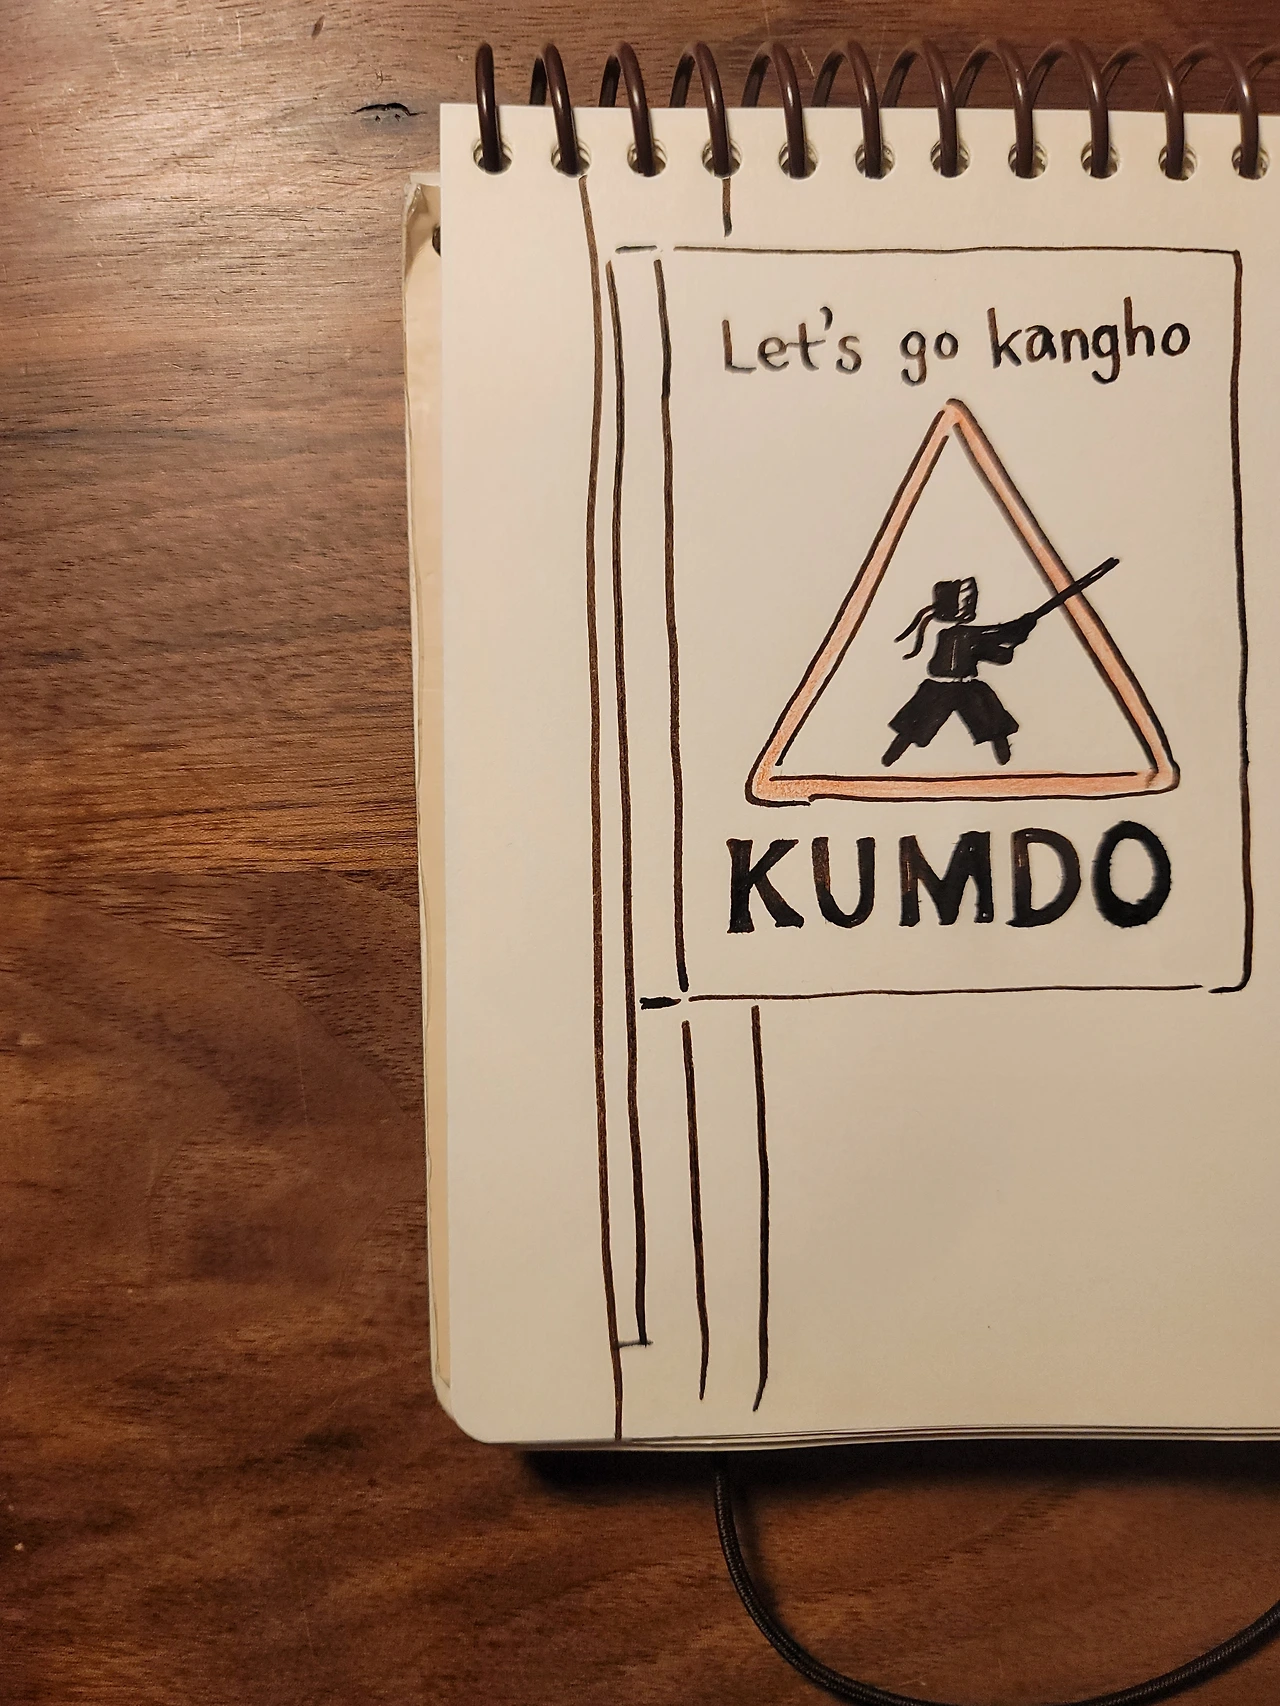 Let's go kangho
KUMDO